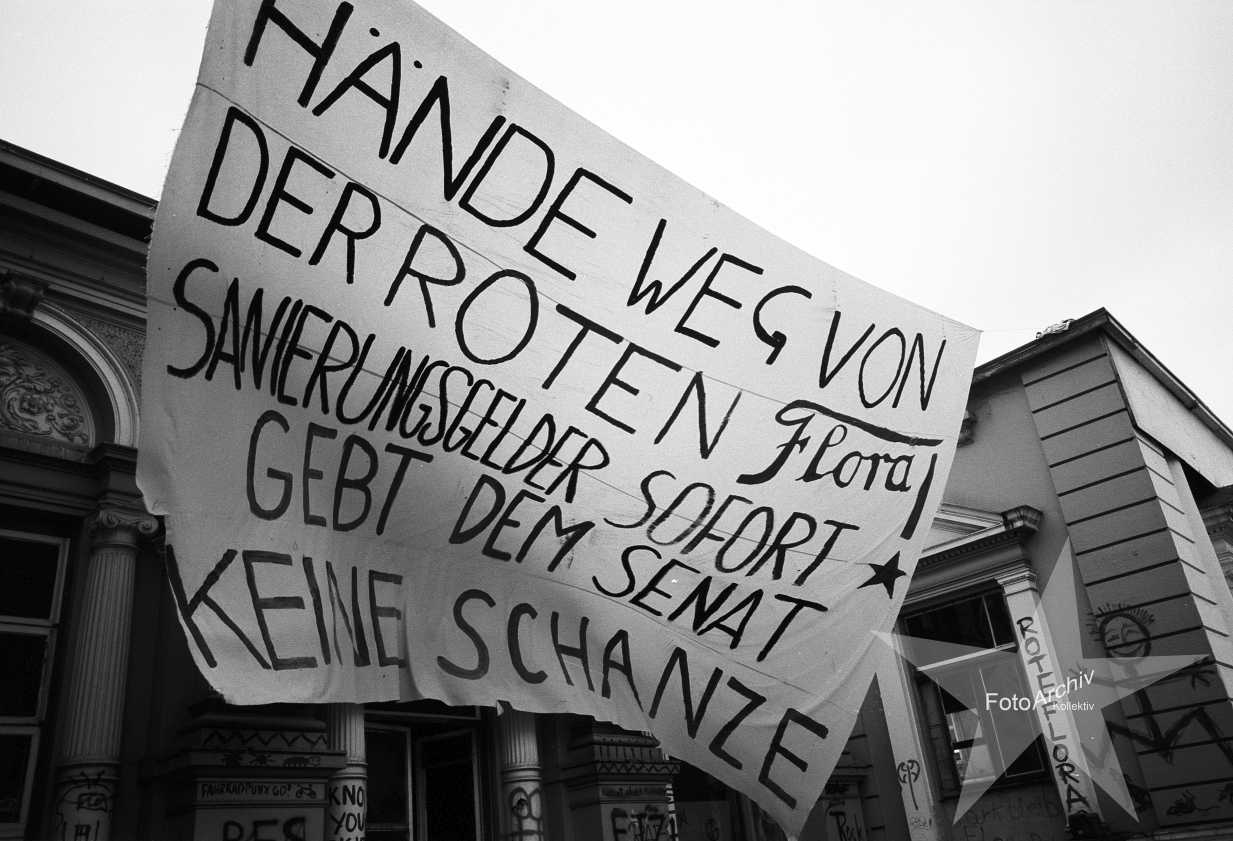 HÄNDE WEG VON
DER ROTEN Flora!
SANIERUNGSGELDER SOFORT
GEBT DEM SENAT
KEINE SCHANZE
ROTE FLORA
FotoArchiv
Kollektiv
KNOW
YOU